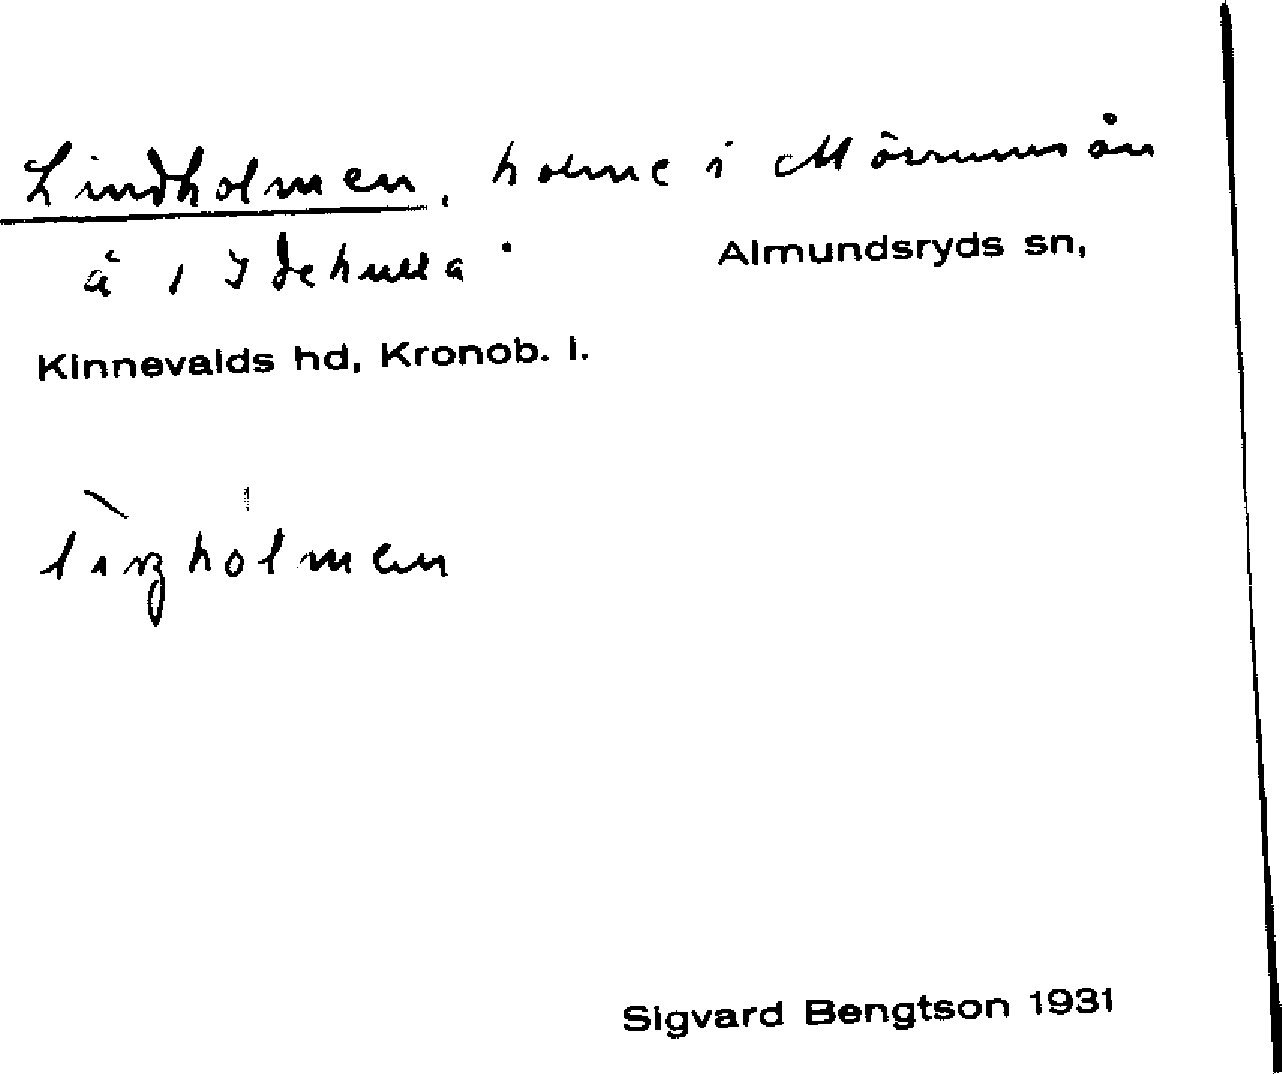 Lindholmen, holme i Mörrumsån
å 1 Idehulta. Almundsryds sn,
Kinnevalds hd, Kronob. l.
holmen
Sigvard Bengtson 1931